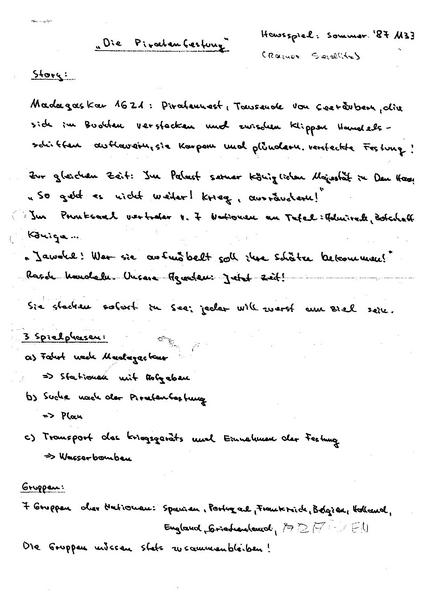 „Die Piratenfestung"
Hausspiel: Sommer '87 M33
(Rainer Seidlitz)
Story:
Madagaskar 1621: Piratennest, Tausende von Seeräubern, die
sich in Buchten verstecken und zwischen Klippen Handels-
schiffen auflauern, sie kapern und plündern. versteckte Festung!
Zur gleichen Zeit: Im Palast seiner königlichen Majestät in Den Haag
„So geht es nicht weiter! Krieg, ausräuchern!"
Im Prunksaal vertreter v. 7 Nationen an Tafel: Admirale, Botschaft
Könige...
„Jawohl! Wer sie aufmöbelt soll ihre Schätze bekommen!"
Rasch handeln. Unsere Agenten: Jetzt Zeit!
Sie stechen sofort in See; jeder will zuerst am Ziel sein.
3 Spielphasen:
a) Fahrt nach Madagaskar
=> Stationen mit Aufgaben
b) Suche nach der Piratenfestung
=> Plan
c) Transport des Kriegsgeräts und Einnehmen der Festung
=> Wasserbomben
Gruppen:
7 Gruppen der Nationen: Spanien, Portugal, Frankreich, Belgien, Holland,
England, Griechenland,
Die Gruppen müssen stets zusammenbleiben!